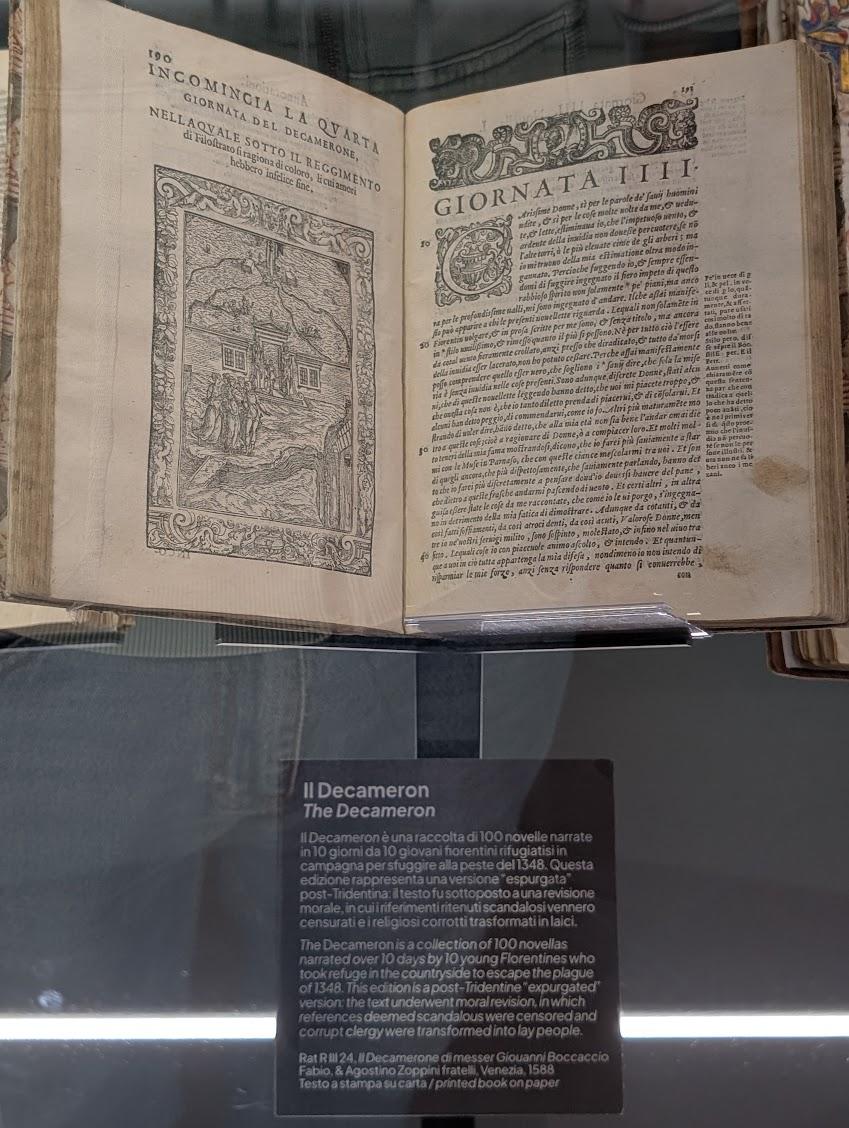 190
INCOMINCIA LA QVARTA
GIORNATA DEL DECAMERONE,
NELLAQVALE SOTTO IL REGGIMENTO
di Filostrato si ragiona di coloro, li cui amori
hebbero infelice fine.
191
GIORNATA IIII.
Arissime Donne, sì per le parole de' sauij huomini
udite, & sì per le cose molte uolte da me, & uedu-
te, & lette, estimaua io, che l'impetuoso uento, &
10
ardente della inuidia non douesse percuotere, se nō
l'alte torri, ò le più eleuate cime de gli arberi; ma
io mi truouo della mia estimatione oltra modo in-
gannato. Percioche fuggendo io, & sempre essen-
domi di fuggire ingegnato il fiero impeto di questo
rabbioso spirito non solamente pe' piani, ma anco
ra per le profondissime ualli, mi sono ingegnato d'andare. Ilche assai manife-
sto può apparire a chi le presenti nouellette riguarda. Lequali non solamēte in
Fiorentin uolgare, & in prosa scritte per me sono, & senza titolo, ma ancora
20
in stilo umilissimo, & rimesso quanto il più si possono. Nè per tutto ciò l'essere
da cotal uento fieramente crollato, anzi presso che diradicato, & tutto da' morsi
della inuidia esser lacerato, non ho potuto cessare. Perche assai manifestamente
posso comprendere quello esser uero, che sogliono i sauij dire, che sola la mise
ria è senza inuidia nelle cose presenti. Sono adunque, discrete Donne, stati alcu
ni, che queste nouellette leggendo hanno detto, che uoi mi piacete troppo, &
che onesta cosa non è, che io tanto diletto prenda di piacerui, & di cōsolarui. Et
alcuni han detto peggio, di commendarui, come io fo. Altri più maturamēte mo
strando di uoler dire, hāno detto, che alla mia età non sia bene l'andar omai die
30
tro a queste cose; cioè a ragionare di Donne, ò a compiacer loro. Et molti mol-
to teneri della mia fama mostrandosi, dicono, che io farei più sauiamente a star
mi con le Muse in Parnaso, che con queste ciance mescolarmi tra uoi. Et son
di quegli ancora, che più dispettosamente, che sauiamente parlando, hanno det
to che io farei più discretamente a pensare dond'io douessi hauere del pane,
che dietro a queste frasche andarmi pascendo di uento. Et certi altri, in altra
guisa essere state le cose da me raccontate, che come io le ui porgo, s'ingegna-
no in detrimento della mia fatica di dimostrare. Adunque da cotanti, & da
così fatti soffiamenti, da così atroci denti, da così acuti, Valorose Donne, men
tre io ne' uostri seruigi milito, sono sospinto, molestato, & infino nel uiuo tra
40
fitto. Lequali cose io con piaceuole animo ascolto, & intendo. Et quantun-
que a uoi in ciò tutta appartenga la mia difesa, nondimeno io non intendo di
risparmiar le mie forze, anzi senza rispondere quanto si conuerrebbe,
Il Decameron
The Decameron
Il Decameron è una raccolta di 100 novelle narrate
in 10 giorni da 10 giovani fiorentini rifugiatisi in
campagna per sfuggire alla peste del 1348. Questa
edizione rappresenta una versione "espurgata"
post-Tridentina: il testo fu sottoposto a una revisione
morale, in cui i riferimenti ritenuti scandalosi vennero
censurati e i religiosi corrotti trasformati in laici.
The Decameron is a collection of 100 novellas
narrated over 10 days by 10 young Florentines who
took refuge in the countryside to escape the plague
of 1348. This edition is a post-Tridentine "expurgated"
version: the text underwent moral revision, in which
references deemed scandalous were censored and
corrupt clergy were transformed into lay people.
Rat R III 24, Il Decamerone di messer Giouanni Boccaccio
Fabio, & Agostino Zoppini fratelli, Venezia, 1588
Testo a stampa su carta / printed book on paper